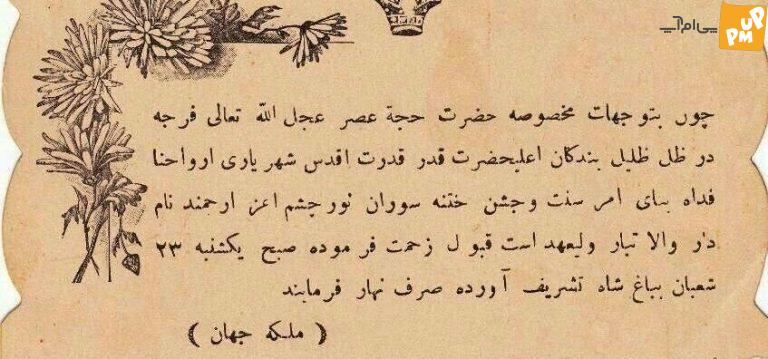 پی‌ام‌آپ
UP
PM
چون بتوجهات مخصوصه حضرت حجة عصر عجل الله تعالی فرجه
در ظل ظلیل بندکان اعلیحضرت قدر قدرت اقدس شهریاری ارواحنا
فداه بنای امر سنت وجشن ختنه سوران نورچشم اعز ارجمند نام
دار والا تبار ولیعهد است قبول زحمت فرموده صبح یکشنبه ۲۳
شعبان بباغ شاه تشریف آورده صرف نهار فرمایند
( ملکه جهان )